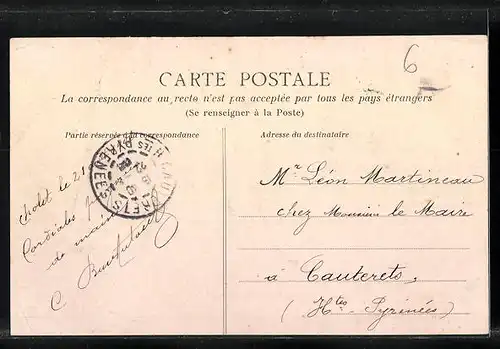 6
CARTE POSTALE
La correspondance au recto n'est pas acceptée par tous les pays étrangers
(Se renseigner à la Poste)
Partie réservée à la correspondance
Adresse du destinataire
CAUTERETS
Htes PYRENEES
Cholet le 21
Cordiales
de main
C.
Mr Léon Martineau
chez Monsieur le Maire
à Cauterets,
(Htes-Pyrinées)